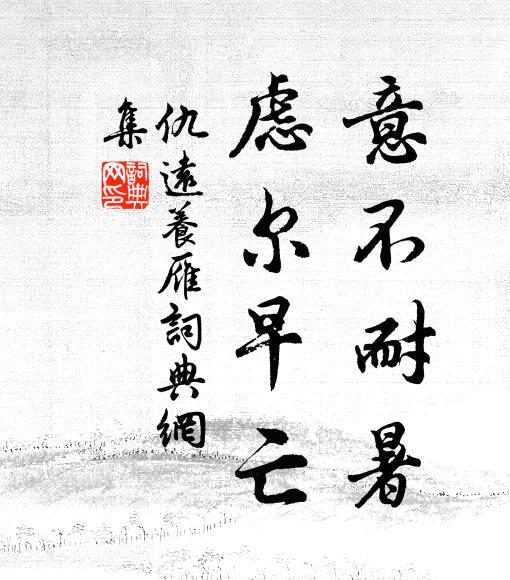 意不耐暑
慮尔早亡
仇遠養雁詞典網
集
詞典
网印